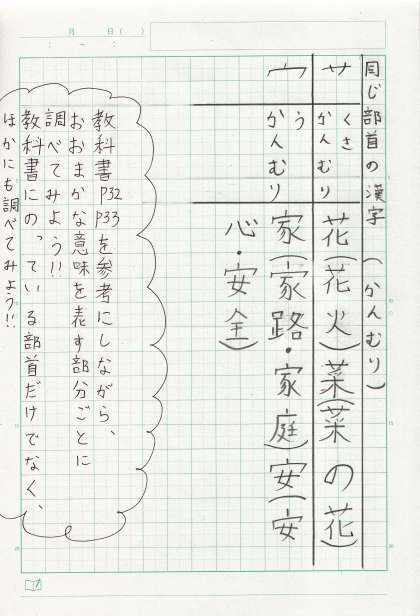 月　日（　）
：　～　：
同じ部首の漢字（かんむり）
艹　くさかんむり　花（花火）菜（菜の花）
宀　うかんむり　家（家路・家庭）安（安
心・安全）
教科書P32P33を参考にしながら、
おおまかな意味を表す部分ごとに
調べてみよう!!
教科書にのっている部首だけでなく、
ほかにも調べてみよう!!